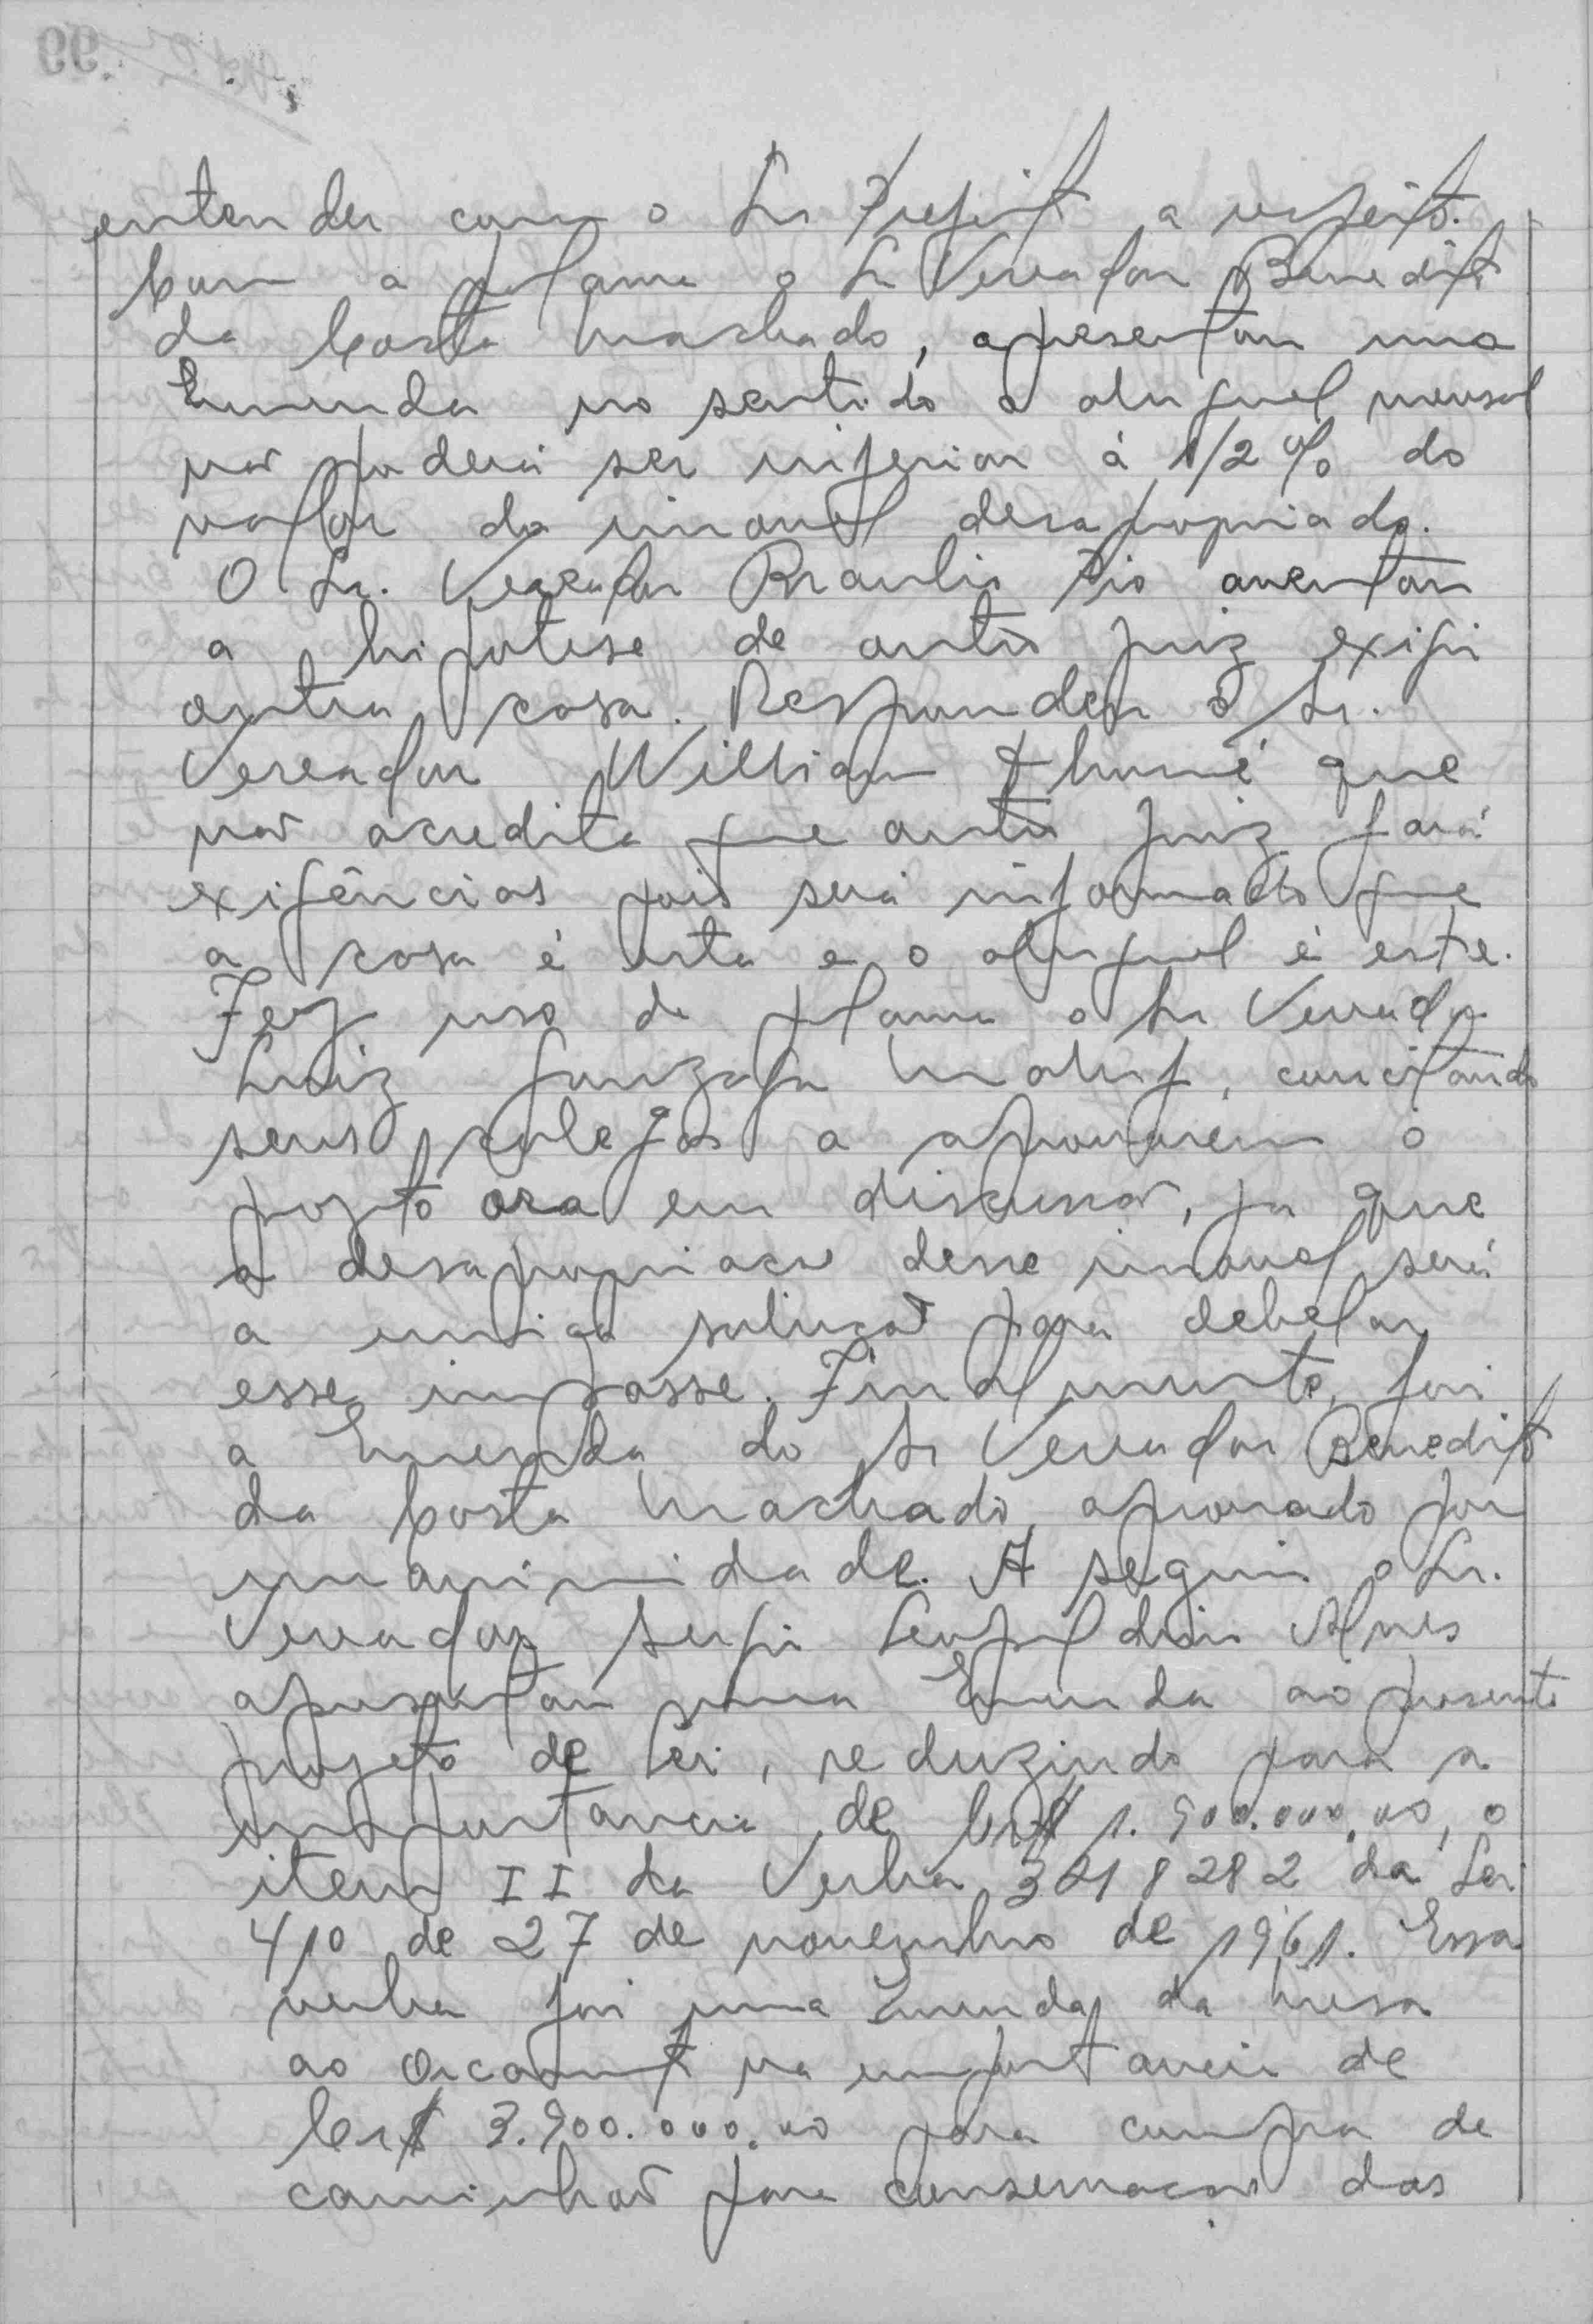 entender com o Sr Prefeito a respeito.
Com a palavra o Sr Vereador Benedito
da Costa Machado, apresentou uma
Emenda no sentido o aluguel mensal
não poderá ser inferior á 1/2 % do
valor do imovel desapropriado.
O Sr. Vereador Braulio Pio aventou
a hipotese de outro juiz exigir
outra cosa. Respondeu o Sr.
Vereador William Thomé que
não acredita que outro juiz fará
exigências pois será informado que
a cosa é esta e o aluguel é este.
Fez uso da palavra o Sr Vereador
Luiz Gonzaga Maluf, concitando
seus colegas a aprovarem o
projeto ora em discussão, ja que
a desapropriação desse imovel será
a unica solução para debelar
esse impasse. Finalmente, foi
a Emenda do Sr Vereador Benedito
da Costa Machado, aprovado por
unanimidade. A seguir o Sr.
Vereador Sergio Leopoldino Alves
apresentou uma Emenda ao presente
projeto de lei, reduzindo para a
importancia de Cr$ 1.900.000,00, o
item II da Verba 3418282 da Lei
410 de 27 de novembro de 1961. Essa
verba foi uma Emenda da Mesa
ao Orcamento na importancia de
Cr$ 3.900.000,00 para compra de
caminhão para conservação das